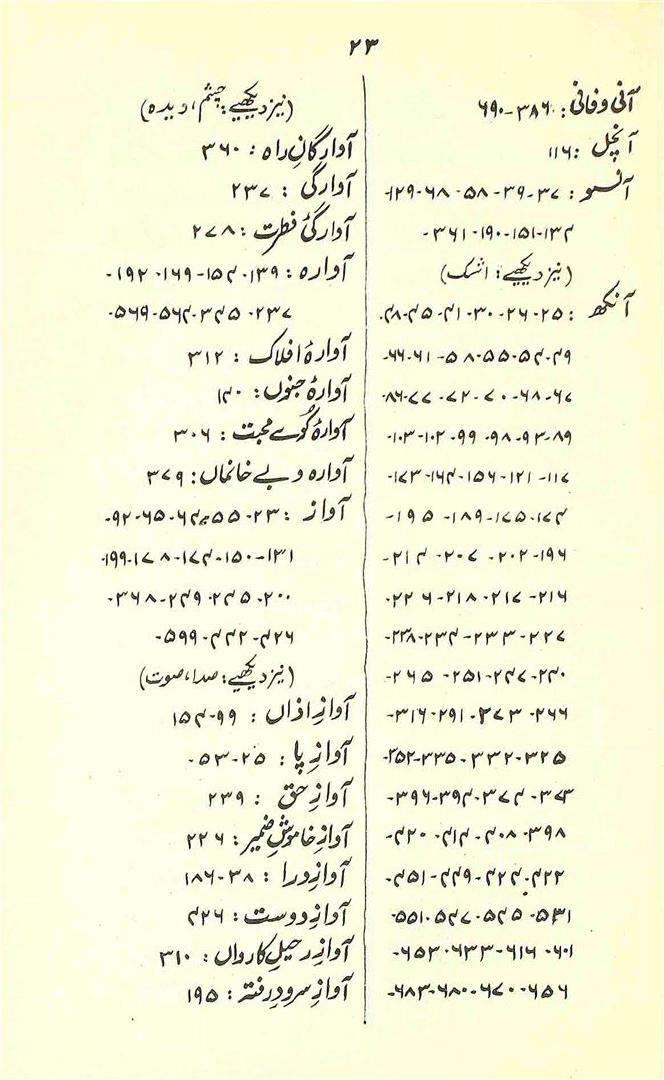 ۲۳
آنی و فانی: ۳۸۶-۶۹۰
آنچل: ۱۱۶
آنسو: ۳۷-۳۹-۵۸-۶۸-۱۲۹-
۱۳۴-۱۵۱-۱۹۰-۳۶۱-
(نیز دیکھیے: اشک)
آنکھ: ۲۵-۲۶-۳۰-۴۱-۴۵-۴۸-
۴۹-۵۴-۵۵-۵۸-۶۱-۶۶-
۶۷-۶۸-۷۰-۷۲-۷۷-۸۶-
۸۹-۹۳-۹۸-۹۹-۱۰۲-۱۰۳-
۱۱۷-۱۲۱-۱۵۶-۱۶۴-۱۷۳-
۱۷۴-۱۷۵-۱۸۹-۱۹۵-
۱۹۶-۲۰۲-۲۰۷-۲۱۴-
۲۱۶-۲۱۷-۲۱۸-۲۲۶-
۲۲۷-۲۳۳-۲۳۴-۲۳۸-
۲۴۰-۲۴۷-۲۵۱-۲۶۵-
۲۶۶-۲۷۳-۲۹۱-۳۱۶-
۳۲۵-۳۳۲-۳۳۵-۳۵۲-
۳۷۳-۳۷۴-۳۹۴-۳۹۶-
۳۹۸-۴۰۸-۴۱۴-۴۲۰-
۴۲۲-۴۲۴-۴۴۹-۴۵۱-
۵۳۱-۵۴۵-۵۴۷-۵۵۱-
۶۰۱-۶۱۶-۶۳۳-۶۵۳-
۶۵۶-۶۷۰-۶۸۰-۶۸۳-
(نیز دیکھیے: چشم، دیدہ)
آوارگانِ راہ: ۳۶۰
آوارگی: ۲۳۷
آوارگیٔ فطرت: ۲۷۸
آوارہ: ۱۳۹-۱۵۴-۱۶۹-۱۹۲-
۲۳۷-۳۴۵-۵۶۴-۵۶۹-
آوارۂ افلاک: ۳۱۲
آوارۂ جنوں: ۱۴۰
آوارۂ کوے محبت: ۳۰۶
آوارہ و بے خانماں: ۳۷۹
آواز: ۲۳-۵۵-۶۴-۶۵-۹۲-
۱۳۱-۱۵۰-۱۷۴-۱۷۸-۱۹۹-
۲۰۰-۲۴۵-۲۴۹-۳۶۸-
۴۲۶-۴۴۲-۵۹۹-
(نیز دیکھیے: صدا، صوت)
آوازِ اذاں: ۹۹-۱۵۴
آوازِ پا: ۲۵-۵۳-
آوازِ حق: ۲۳۹
آوازِ خاموشِ ضمیر: ۲۲۶
آوازِ درا: ۳۸-۱۸۶
آوازِ دوست: ۴۲۶
آوازِ رحیلِ کارواں: ۳۱۰
آوازِ سرودِ رفتہ: ۱۹۵